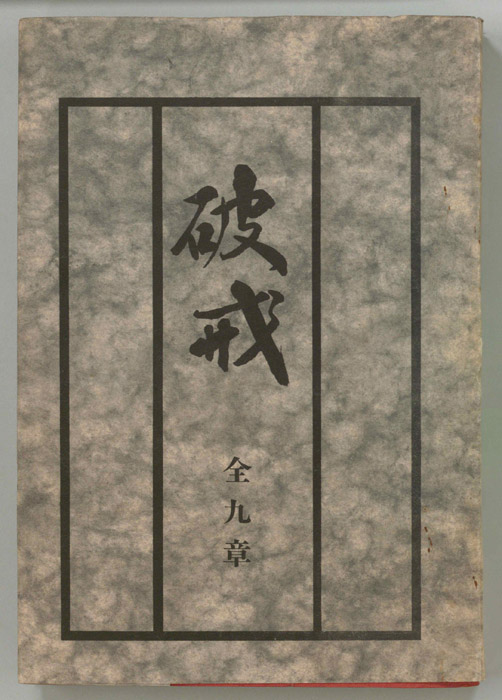 破戒
全九章